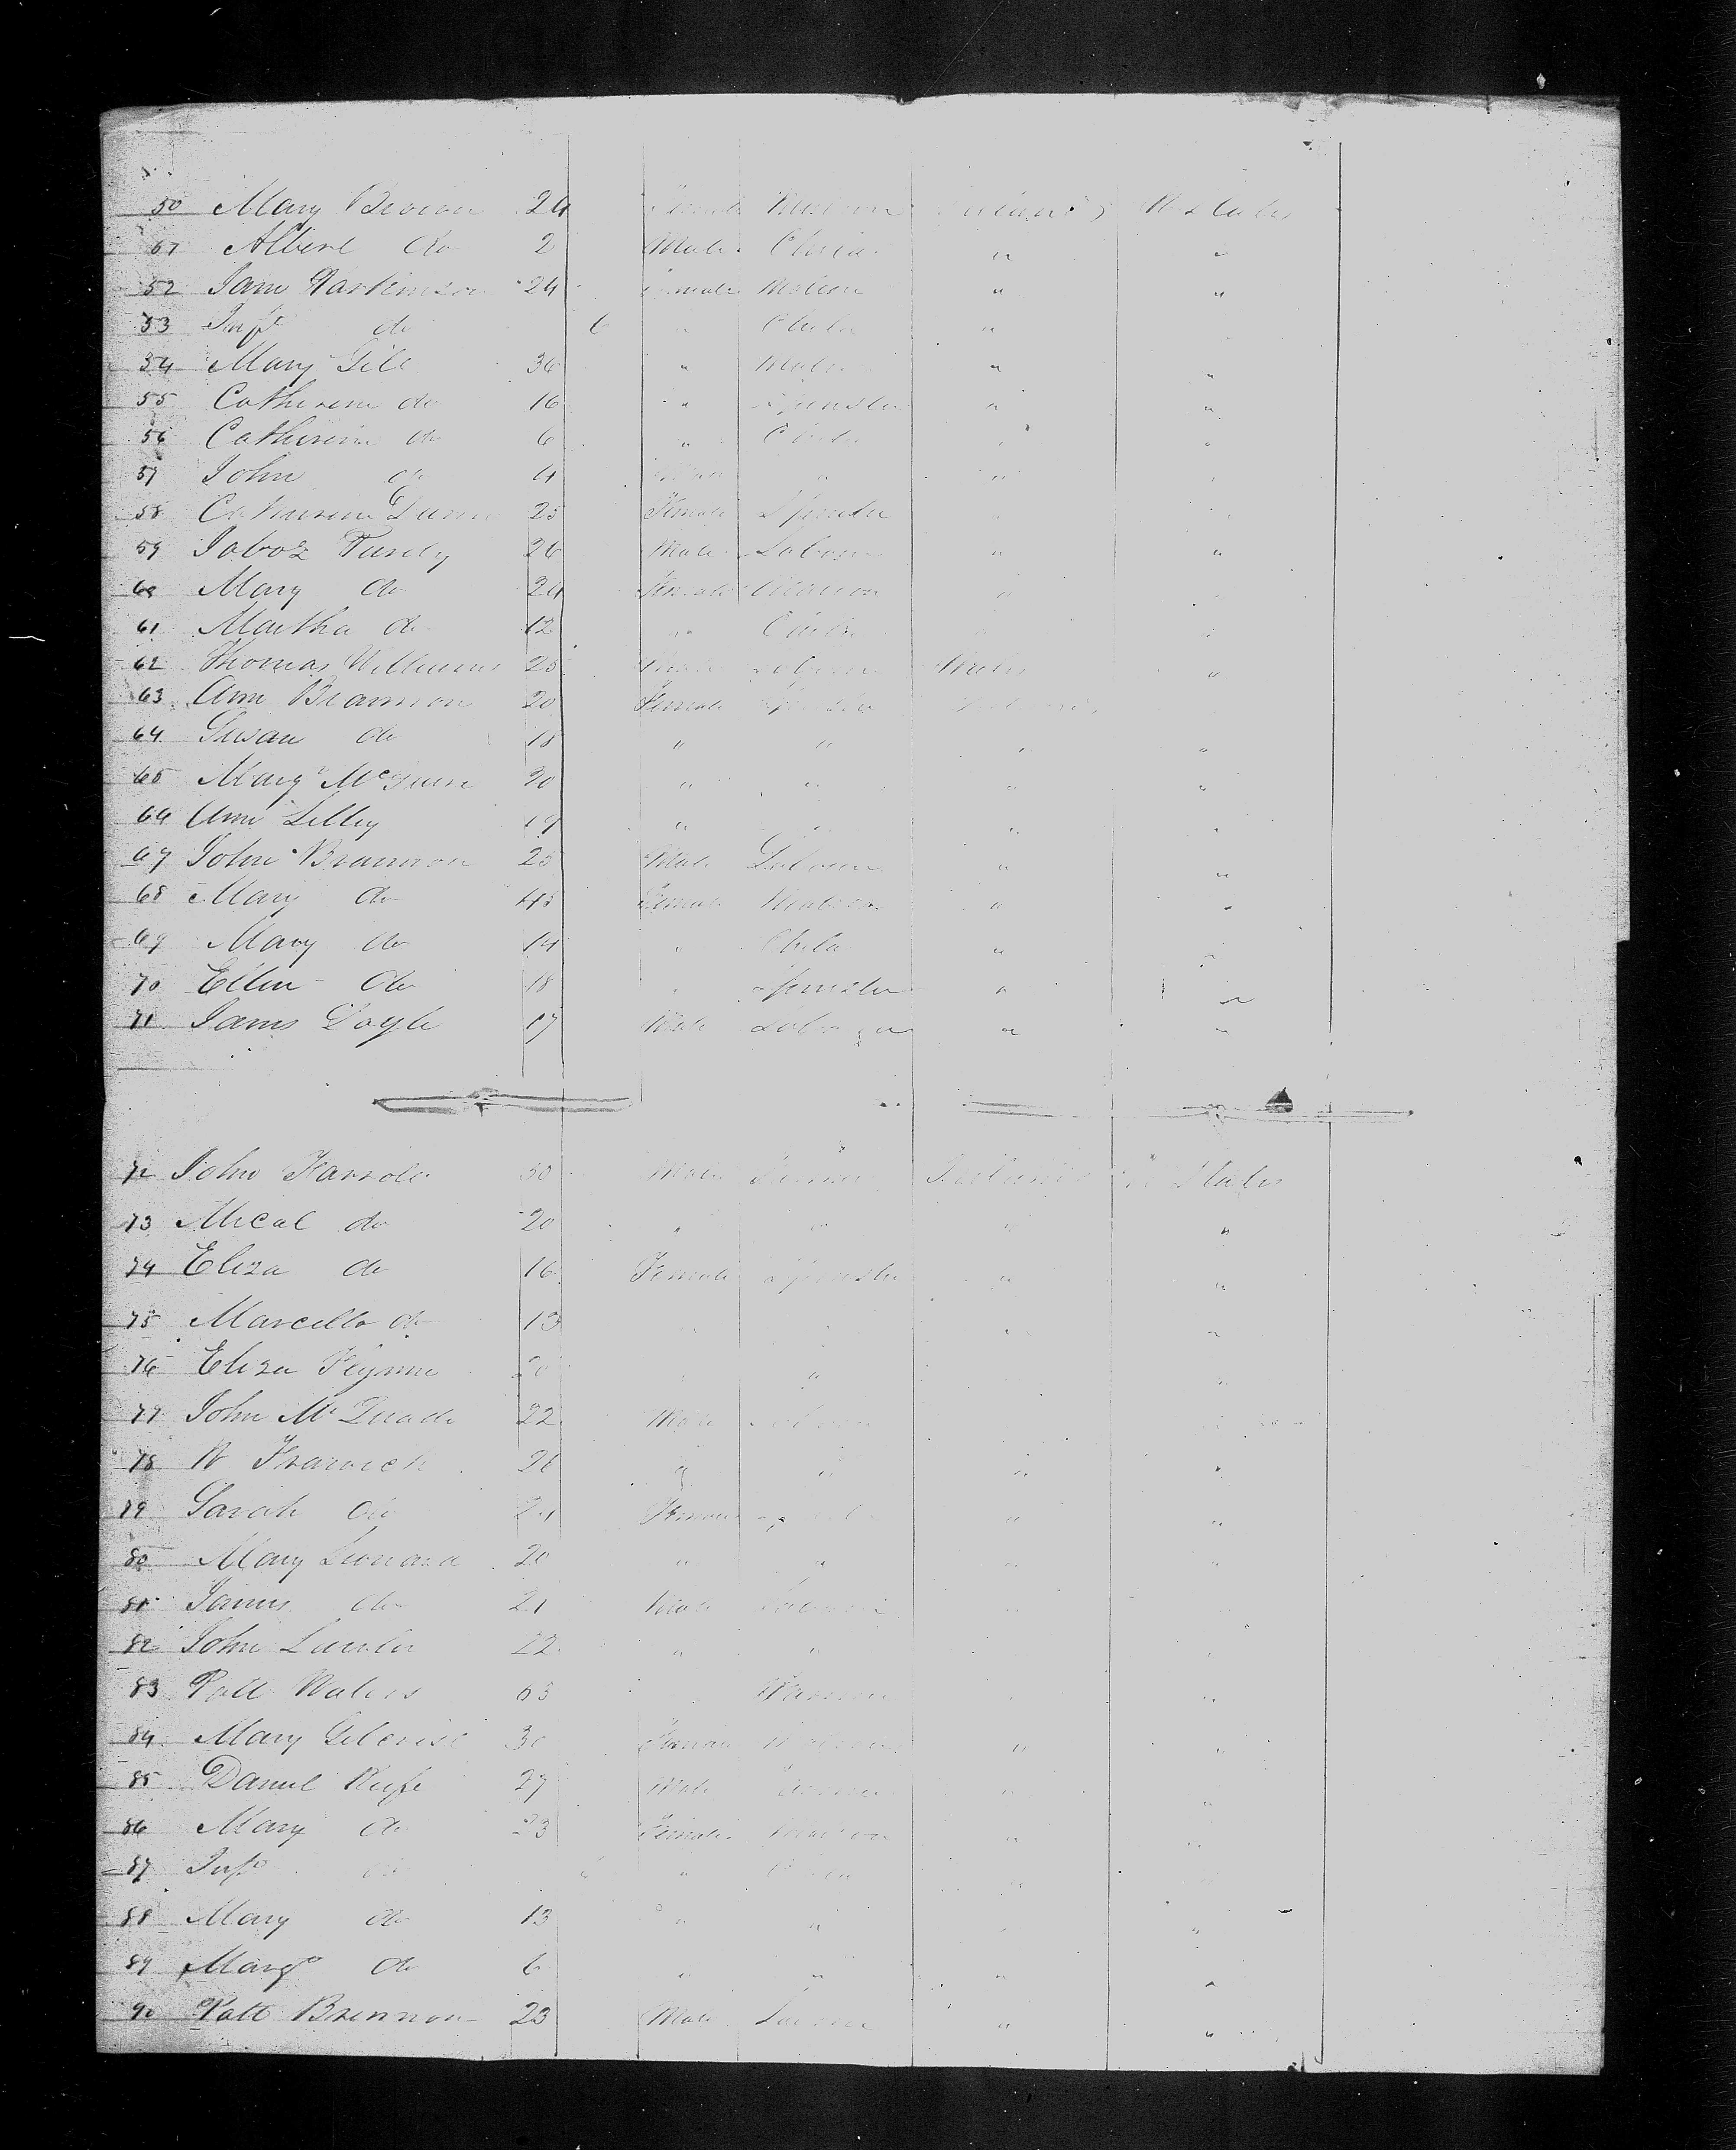 50 Mary Brown 24 Female Matron Ireland U States
51 Albert do 2 Male Child " "
52 Jane Parkinson 24 Female Matron " "
53 Inft do 6 " Child "
54 Mary Gill 36 " Matron " "
55 Catherine do 16 " Spinster " "
56 Catherine do 6 " Child " "
57 John do 4 Male " " "
58 Catherine Dunn 25 Female Spinster " "
59 Taboz Purdy 26 Male Labourer " "
60 Mary do 24 Female Matron " "
61 Martha do 12 " Child "
62 Thomas Williams 25 Male Labourer Wales "
63 Ann Brannon 20 Female Spinster Ireland
64 Susan do 18 " " " "
65 Margt McGuire 20 " " " "
66 Ann Lilley 19 " " "
67 John Brannon 25 Male Labourer " "
68 Mary do 45 Female Matron " "
69 Mary do 14 " Child " "
70 Ellen do 18 " Spinster " "
71 James Doyle 17 Male Labourer " "
72 John Farroll 50 Male Farmer Ireland U States
73 Mical do 20 " " " "
74 Eliza do 16 Female Spinster " "
75 Marcella do 13 " "
76 Eliza Flynn 20 " "
77 John McQuade 22 Male Labourer
78 W 26 " " " "
79 Sarah do Female " "
80 Mary Leonard 20 " " " "
81 James do 21 Male Labourer "
82 John Lawlor 22 " " "
83 Patt Waters 63 Farmer "
84 Mary Gilcrist 30 Female Matron " "
85 Daniel 27 Male Farmer " "
86 Mary do 23 Female Matron " "
87 Inft do " Child "
88 Mary do 13 " " "
89 Margt do 6 " " " "
90 Patt Brennon 23 Male Labourer " "